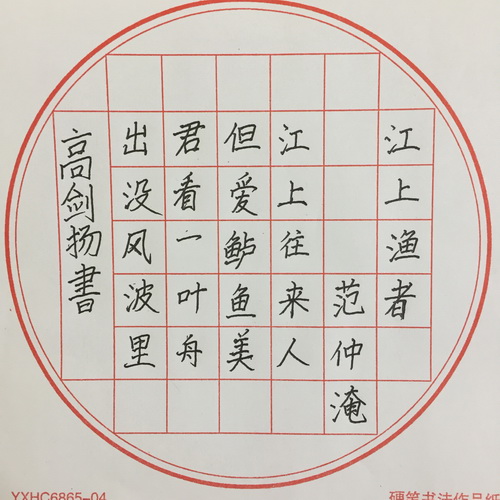 江上渔者
范仲淹
江上往来人
但爱鲈鱼美
君看一叶舟
出没风波里
高剑扬書
YXHC6865-04
硬笔书法作品纸